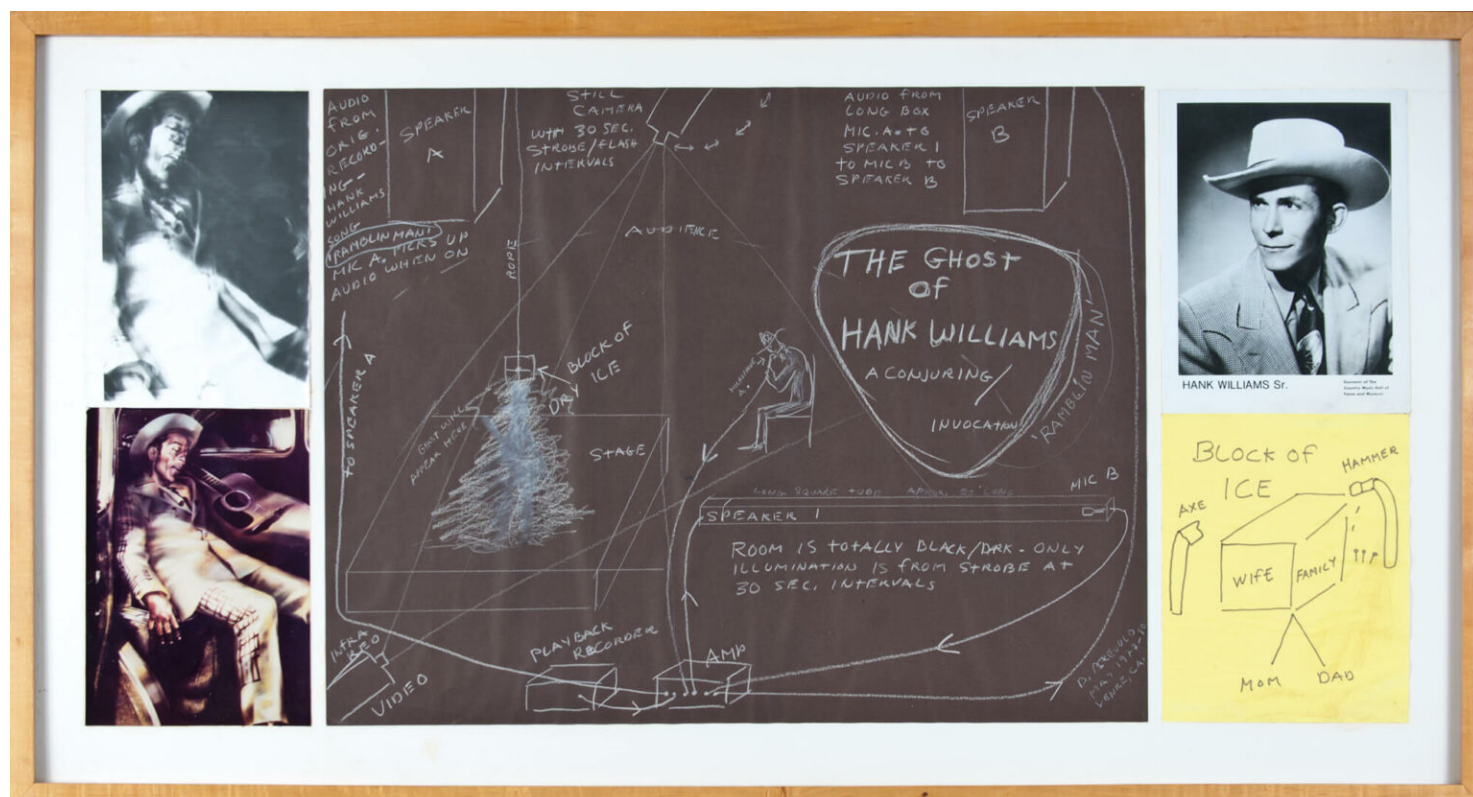 AUDIO
FROM
ORIG.
RECORD-
ING-
HANK
WILLIAMS
SONG
'RAMBLIN MAN'
MIC A. PICKS UP
AUDIO WHEN ON
SPEAKER
A
STILL
CAMERA
WITH 30 SEC.
STROBE/FLASH
INTERVALS
AUDIO FROM
LONG BOX
MIC. A. TO
SPEAKER 1
TO MIC B TO
SPEAKER B
SPEAKER
B
ROPE
AUDIENCE
THE GHOST
OF
HANK WILLIAMS
A CONJURING/
INVOCATION
'RAMBLIN MAN'
TO SPEAKER A
BLOCK OF
DRY ICE
GHOST WILL
APPEAR HERE
STAGE
MIC B
LONG SQUARE TUBE APROX. 20' LONG
SPEAKER 1
ROOM IS TOTALLY BLACK/DRK - ONLY
ILLUMINATION IS FROM STROBE AT
30 SEC. INTERVALS
INFRA
RED
VIDEO
PLAYBACK
RECORDER
AMP
HANK WILLIAMS Sr.
Country Music Hall of
Fame and Museum
BLOCK OF
ICE
HAMMER
AXE
WIFE
FAMILY
MOM
DAD